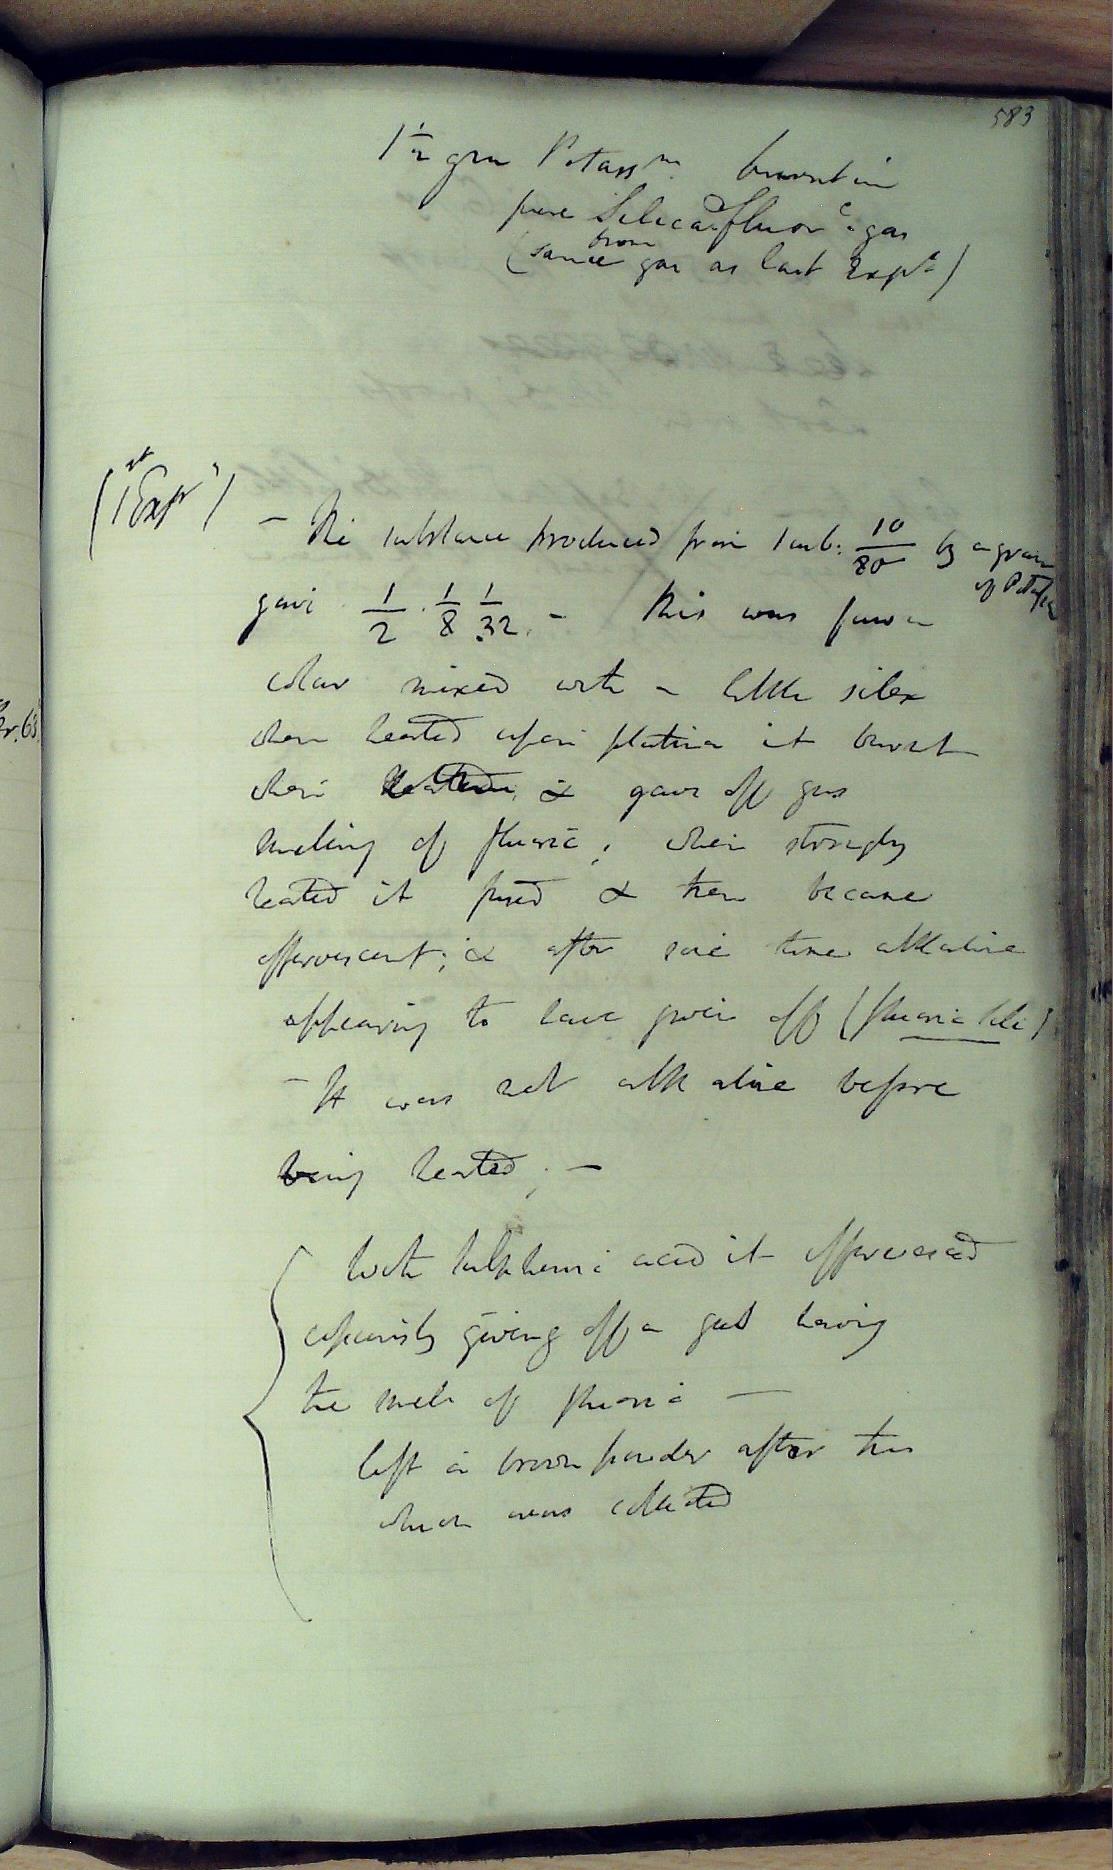 583
1 1/2 grn Potassm. burnt in
pure Silicatdfluorc. gas
(same from gas as last Expt)
(1st Expr)
- The substance produced from 1 cub: 10/80 by a grain
of Potass
gave 1/2 . 1/8 1/32. - This was fawn
colour mixed with a little silex
when heated upon platina it burnt
when & gave off gas
smelling of fluoric; when strongly
heated it fused & then became
effervescent; & after some time alkaline
appearing to have given off (fluoric sili)
- It was not alkaline before
being heated; -
With sulphuric acid it effervesced
copiously giving off a gas having
the smell of fluoric -
left a brown powder after this
which was collected